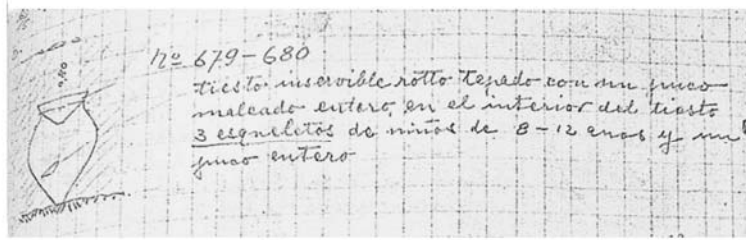 0,80
nº 679-680
tiesto inservible rotto tepado con un puco
maleado entero, en el interior del tiesto
3 esqueletos de niños de 8-12 anos y un
puco entero